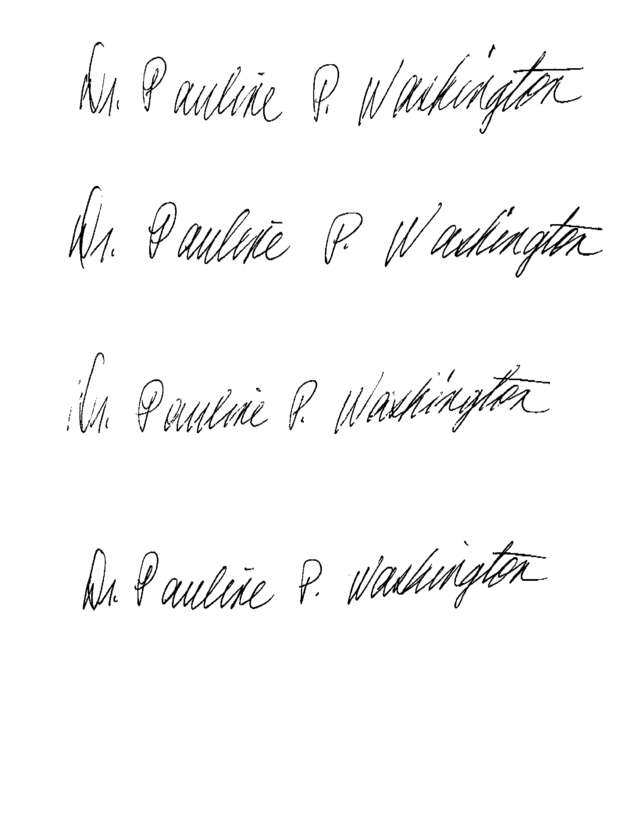 Dr. Pauline P. Washington
Dr. Pauline P. Washington
Dr. Pauline P. Washington
Dr. Pauline P. Washington